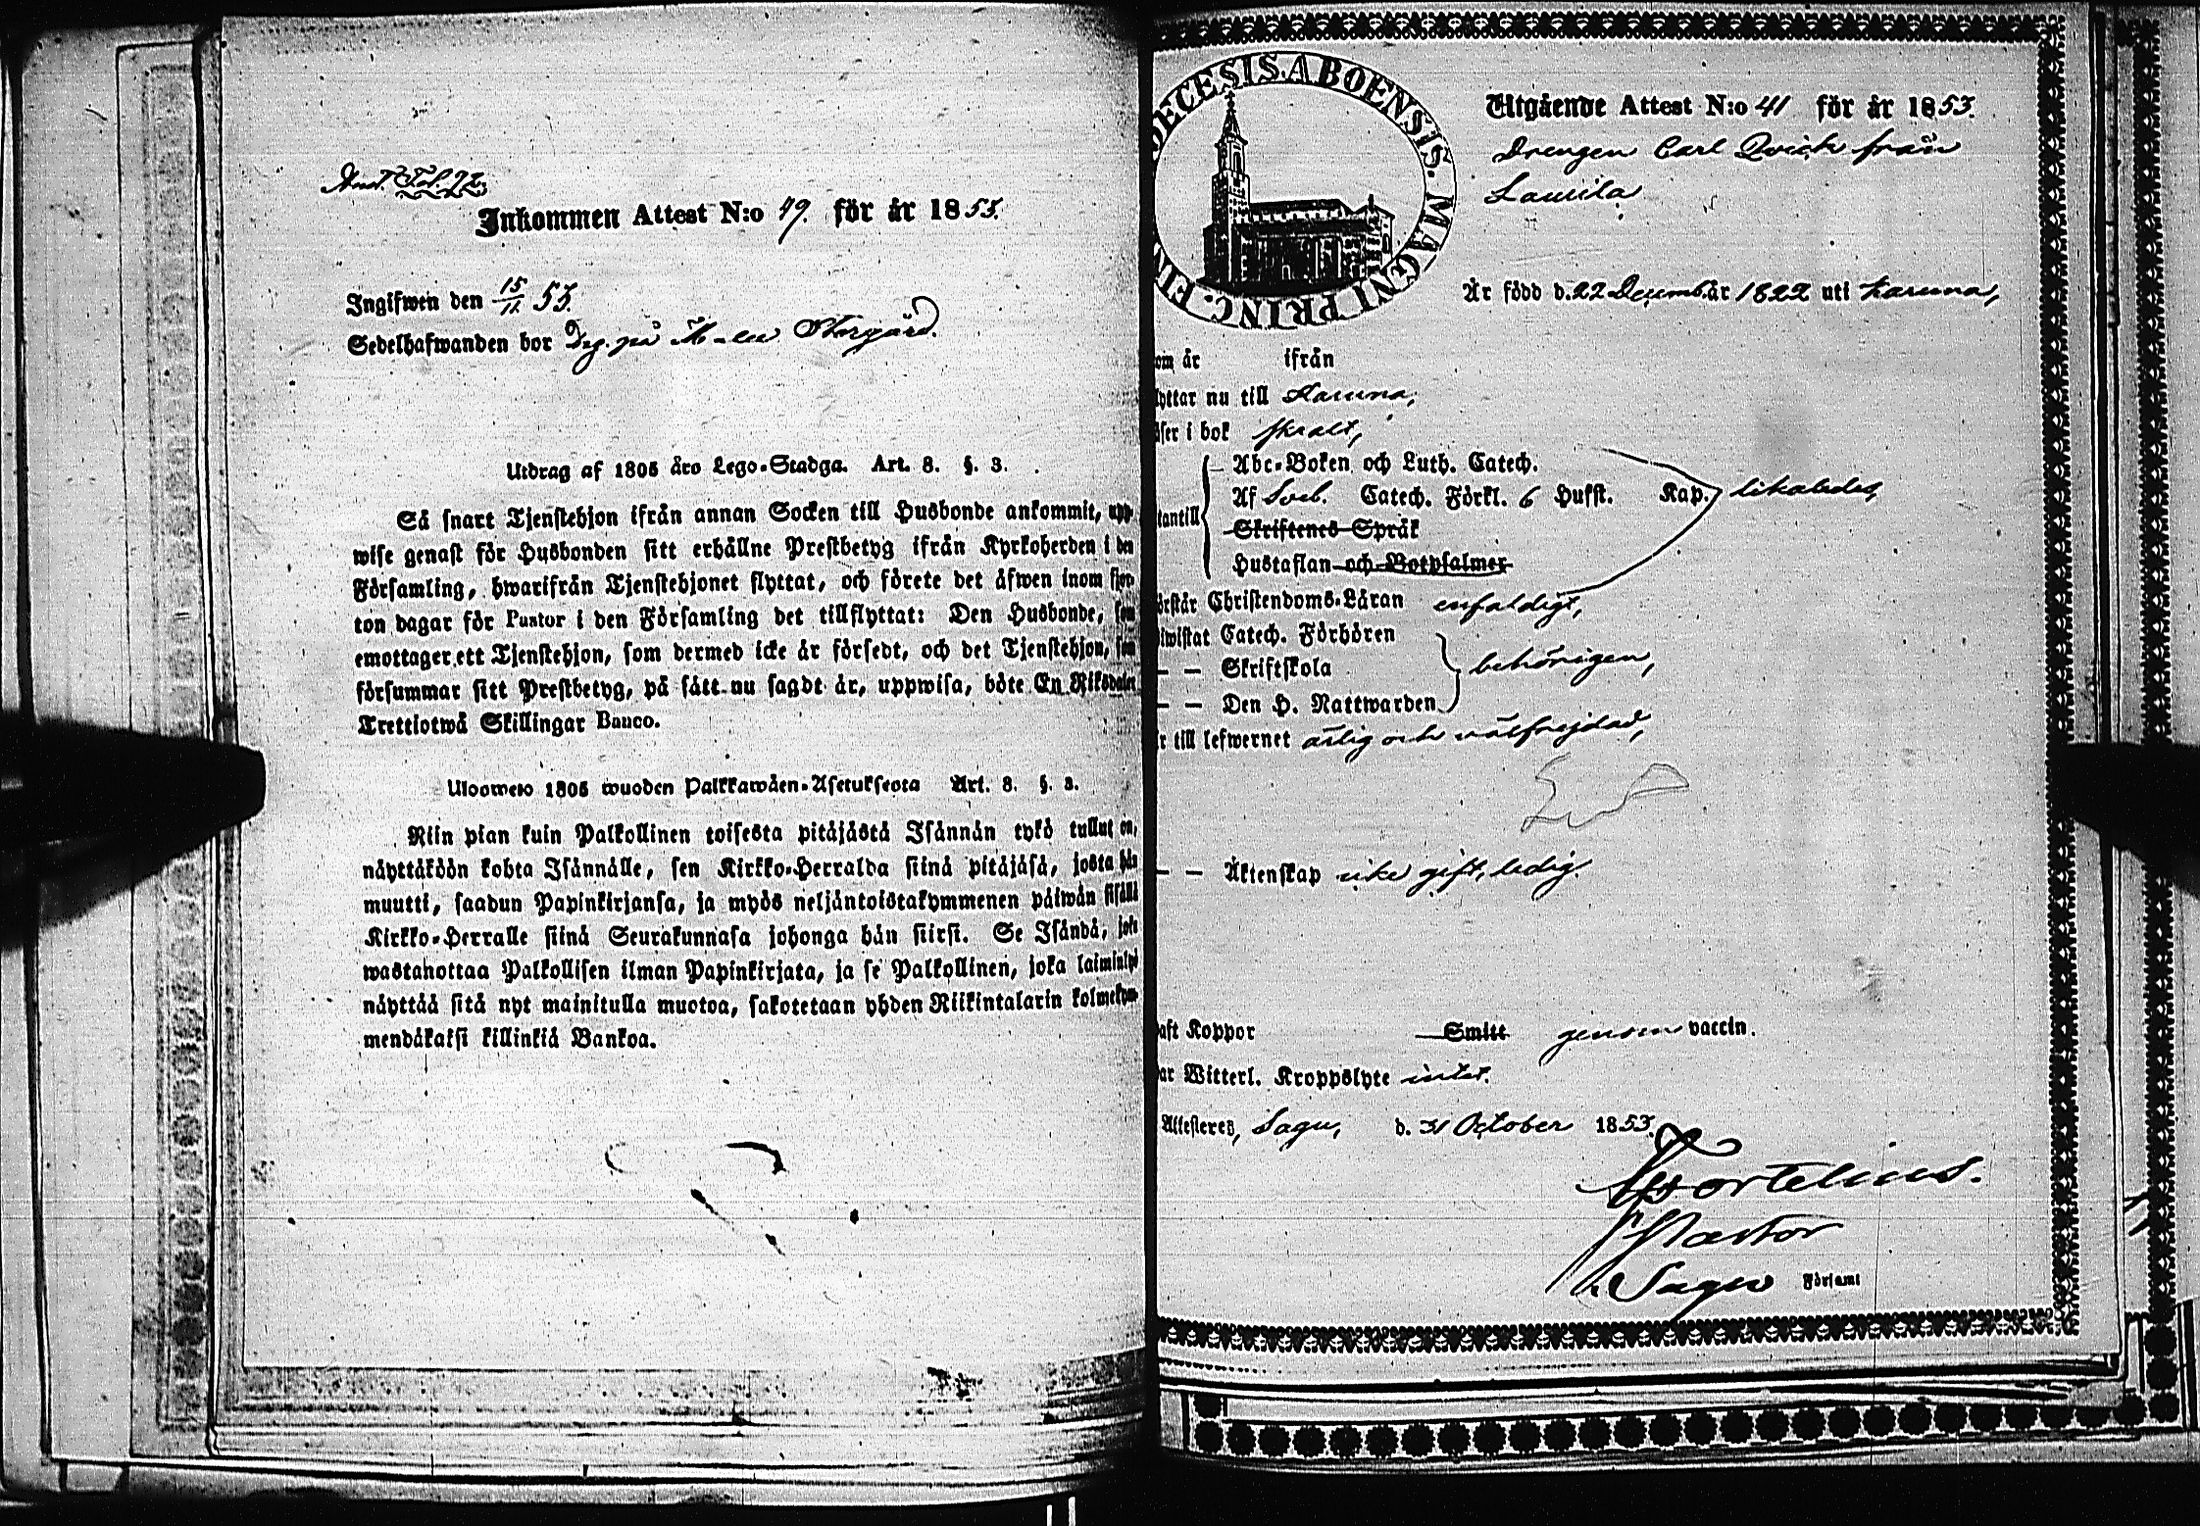 Anst. Fol. 72.
Inkommen Attest N:o 49. för år 1853.
Ingifwen den 15/11 53.
Sedelhafwanden bor Drg. på Storgård.
Utdrag af 1805 års Lego-Stadga. Art. 8. §. 3.
Så snart Tjenstehjon ifrån annan Socken till Husbonde ankommit, upp-
wise genast för Husbonden sitt erhållne Prestbetyg ifrån Kyrkoherden i den
Församling, hwarifrån Tjenstehjonet flyttat, och förete det äfwen inom fjor-
ton dagar för Pastor i den Församling det tillflyttat: Den Husbonde, som
emottager ett Tjenstehjon, som dermed icke är försedt, och det Tjenstehjon, som
försummar sitt Prestbetyg, på sätt nu sagdt är, uppwisa, böte En Riksdaler
Trettiotwå Skillingar Banco.
Ulosweto 1805 wuoden Palkkawäen-Asetuksesta Art. 8. §. 3.
Niin pian kuin Palkollinen toisesta pitäjästä Isännän tykö tullut on,
näyttäköön kohta Isännälle, sen Kirkko-Herralda siinä pitäjäsä, josta hän
muutti, saadun Papinkirjansa, ja myös neljäntoistakymmenen päiwän sisällä
Kirkko-Herralle siinä Seurakunnasa johonga hän siirsi. Se Isändä, joka
wastanottaa Palkollisen ilman Papinkirjata, ja se Palkollinen, joka laiminlyö
näyttää sitä nyt mainitulla muotoa, sakotetaan yhden Riikintalarin kolmekym-
mendäkaksi killinkiä Bankoa.
DECESIS. ABOENSIS. MAGNI PRINC. FIN
Utgående Attest N:o 41 för år 1853.
Drengen Carl Qvick från
Laurila
Är född d. 22 Decemb. år 1822 uti Karuna,
om år ifrån
lyttar nu till Karuna,
äser i bok skralt,
Abc-Boken och Luth. Catech.
tantill Af Sveb. Catech. Förkl. 6 Hufst. Kap. likaledes
Skriftenes Språk
Hustaflan och Botpsalmer
örstår Christendoms-Läran enfaldigt,
iwistat Catech. Förhören
— — Skriftskola behörigen,
— — Den H. Nattwarden
r till lefwernet ärlig och välfrejdad,
— — Äktenskap icke gift, ledig.
aft Koppor Smitt genom vaccin.
ar Witterl. Kroppslyte intet.
Attesteres, Sagu, d. 31 October 1853.
Wortelius.
Pastor
i Sagu Församl